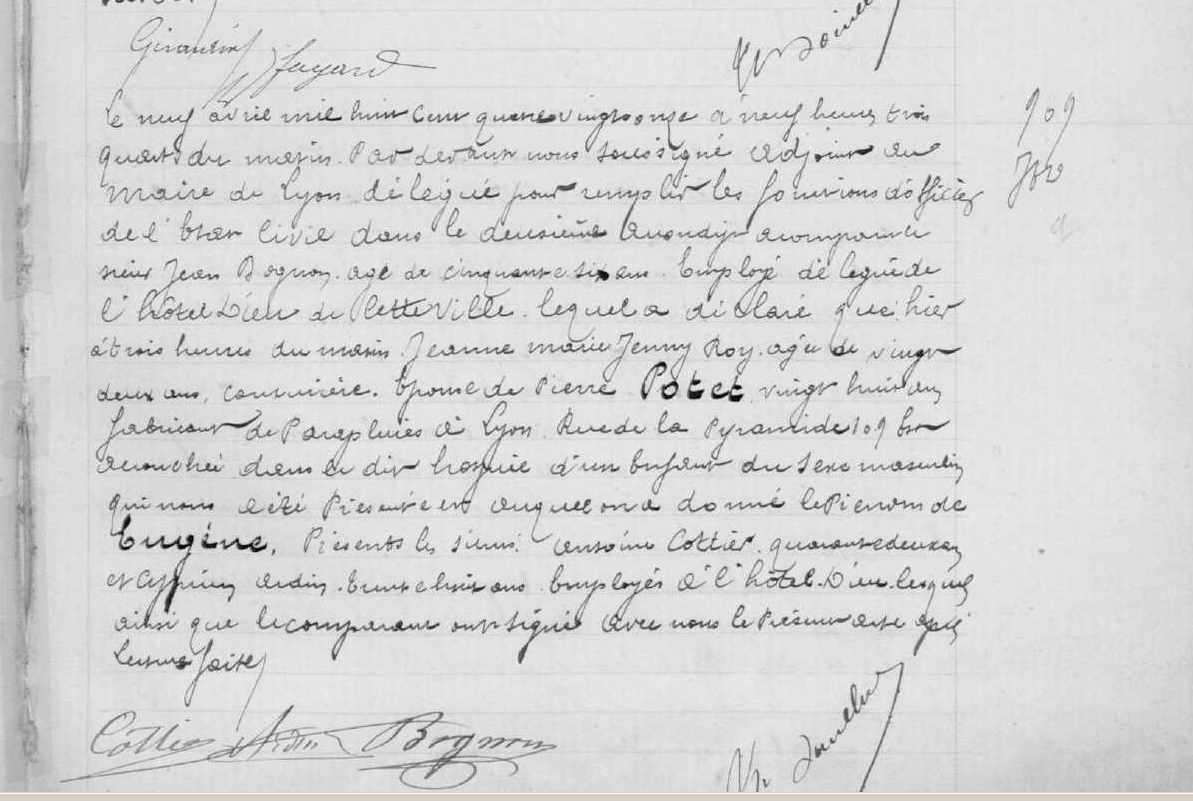 Girardin Fayard
Le neuf avril mil huit cent quatre vingt onze à neuf heures trois 909
quarts du matin. Par devant nous soussigné adjoint au
Maire de Lyon délégué pour remplir les fonctions d'officier
de l'Etat Civil dans le deuxième arrondisst a comparu le
sieur Jean Bognon. agé de cinquante six ans. Employé délégué de
l'hôtel Dieu de Cette Ville. lequel a déclaré que hier
à trois heures du matin. Jeanne marie Jenny Roy. agée de vingt
deux ans, couturière. Epouse de Pierre Potet, vingt huit ans
fabricant de Parapluies à Lyon. Rue de la Pyramide 109 est
accouchée dans le dit hospice d'un Enfant du Sexe masculin
qui nous a été Présenté et auquel on a donné le Prénom de
Eugéne. Présents les sieurs. Antoine Cottier. quarante deux ans
et Cyprien Ardin. trente huit ans. Employés à l'hôtel. Dieu. lesquels
ainsi que le comparant ont signé avec nous le Présent acte après
lecture faite
Cottier Ardin Bognon